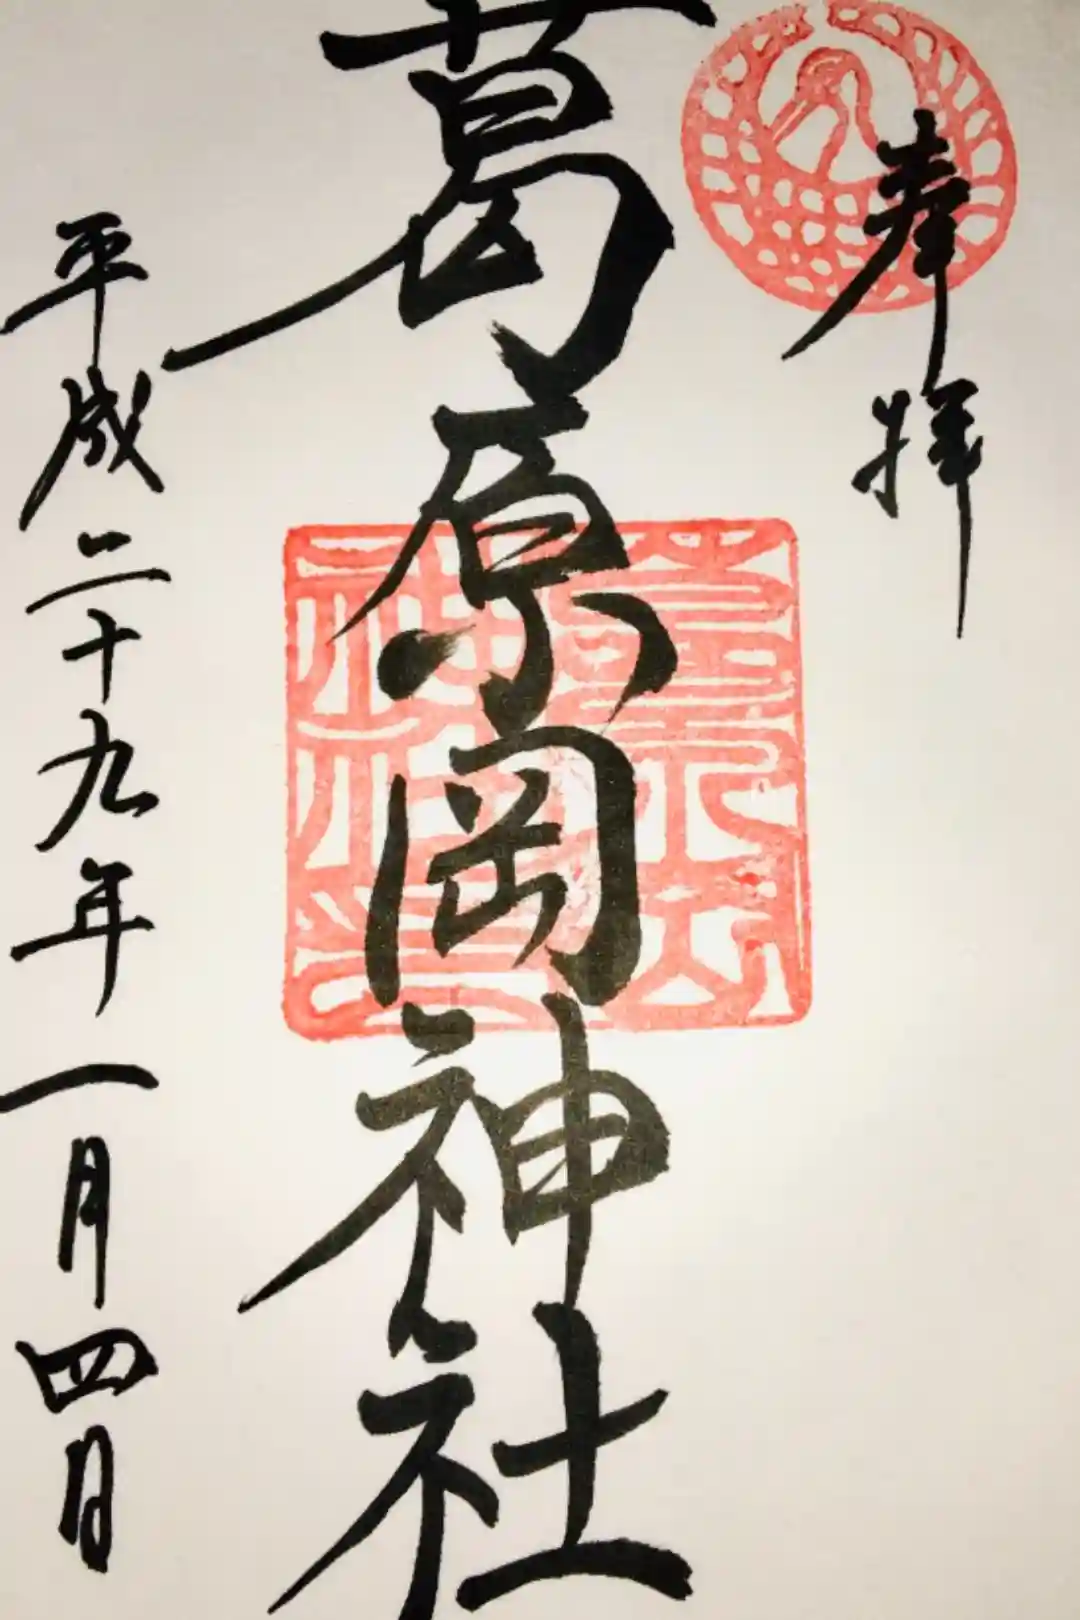 奉拝
葛原岡神社
平成二十九年一月四日